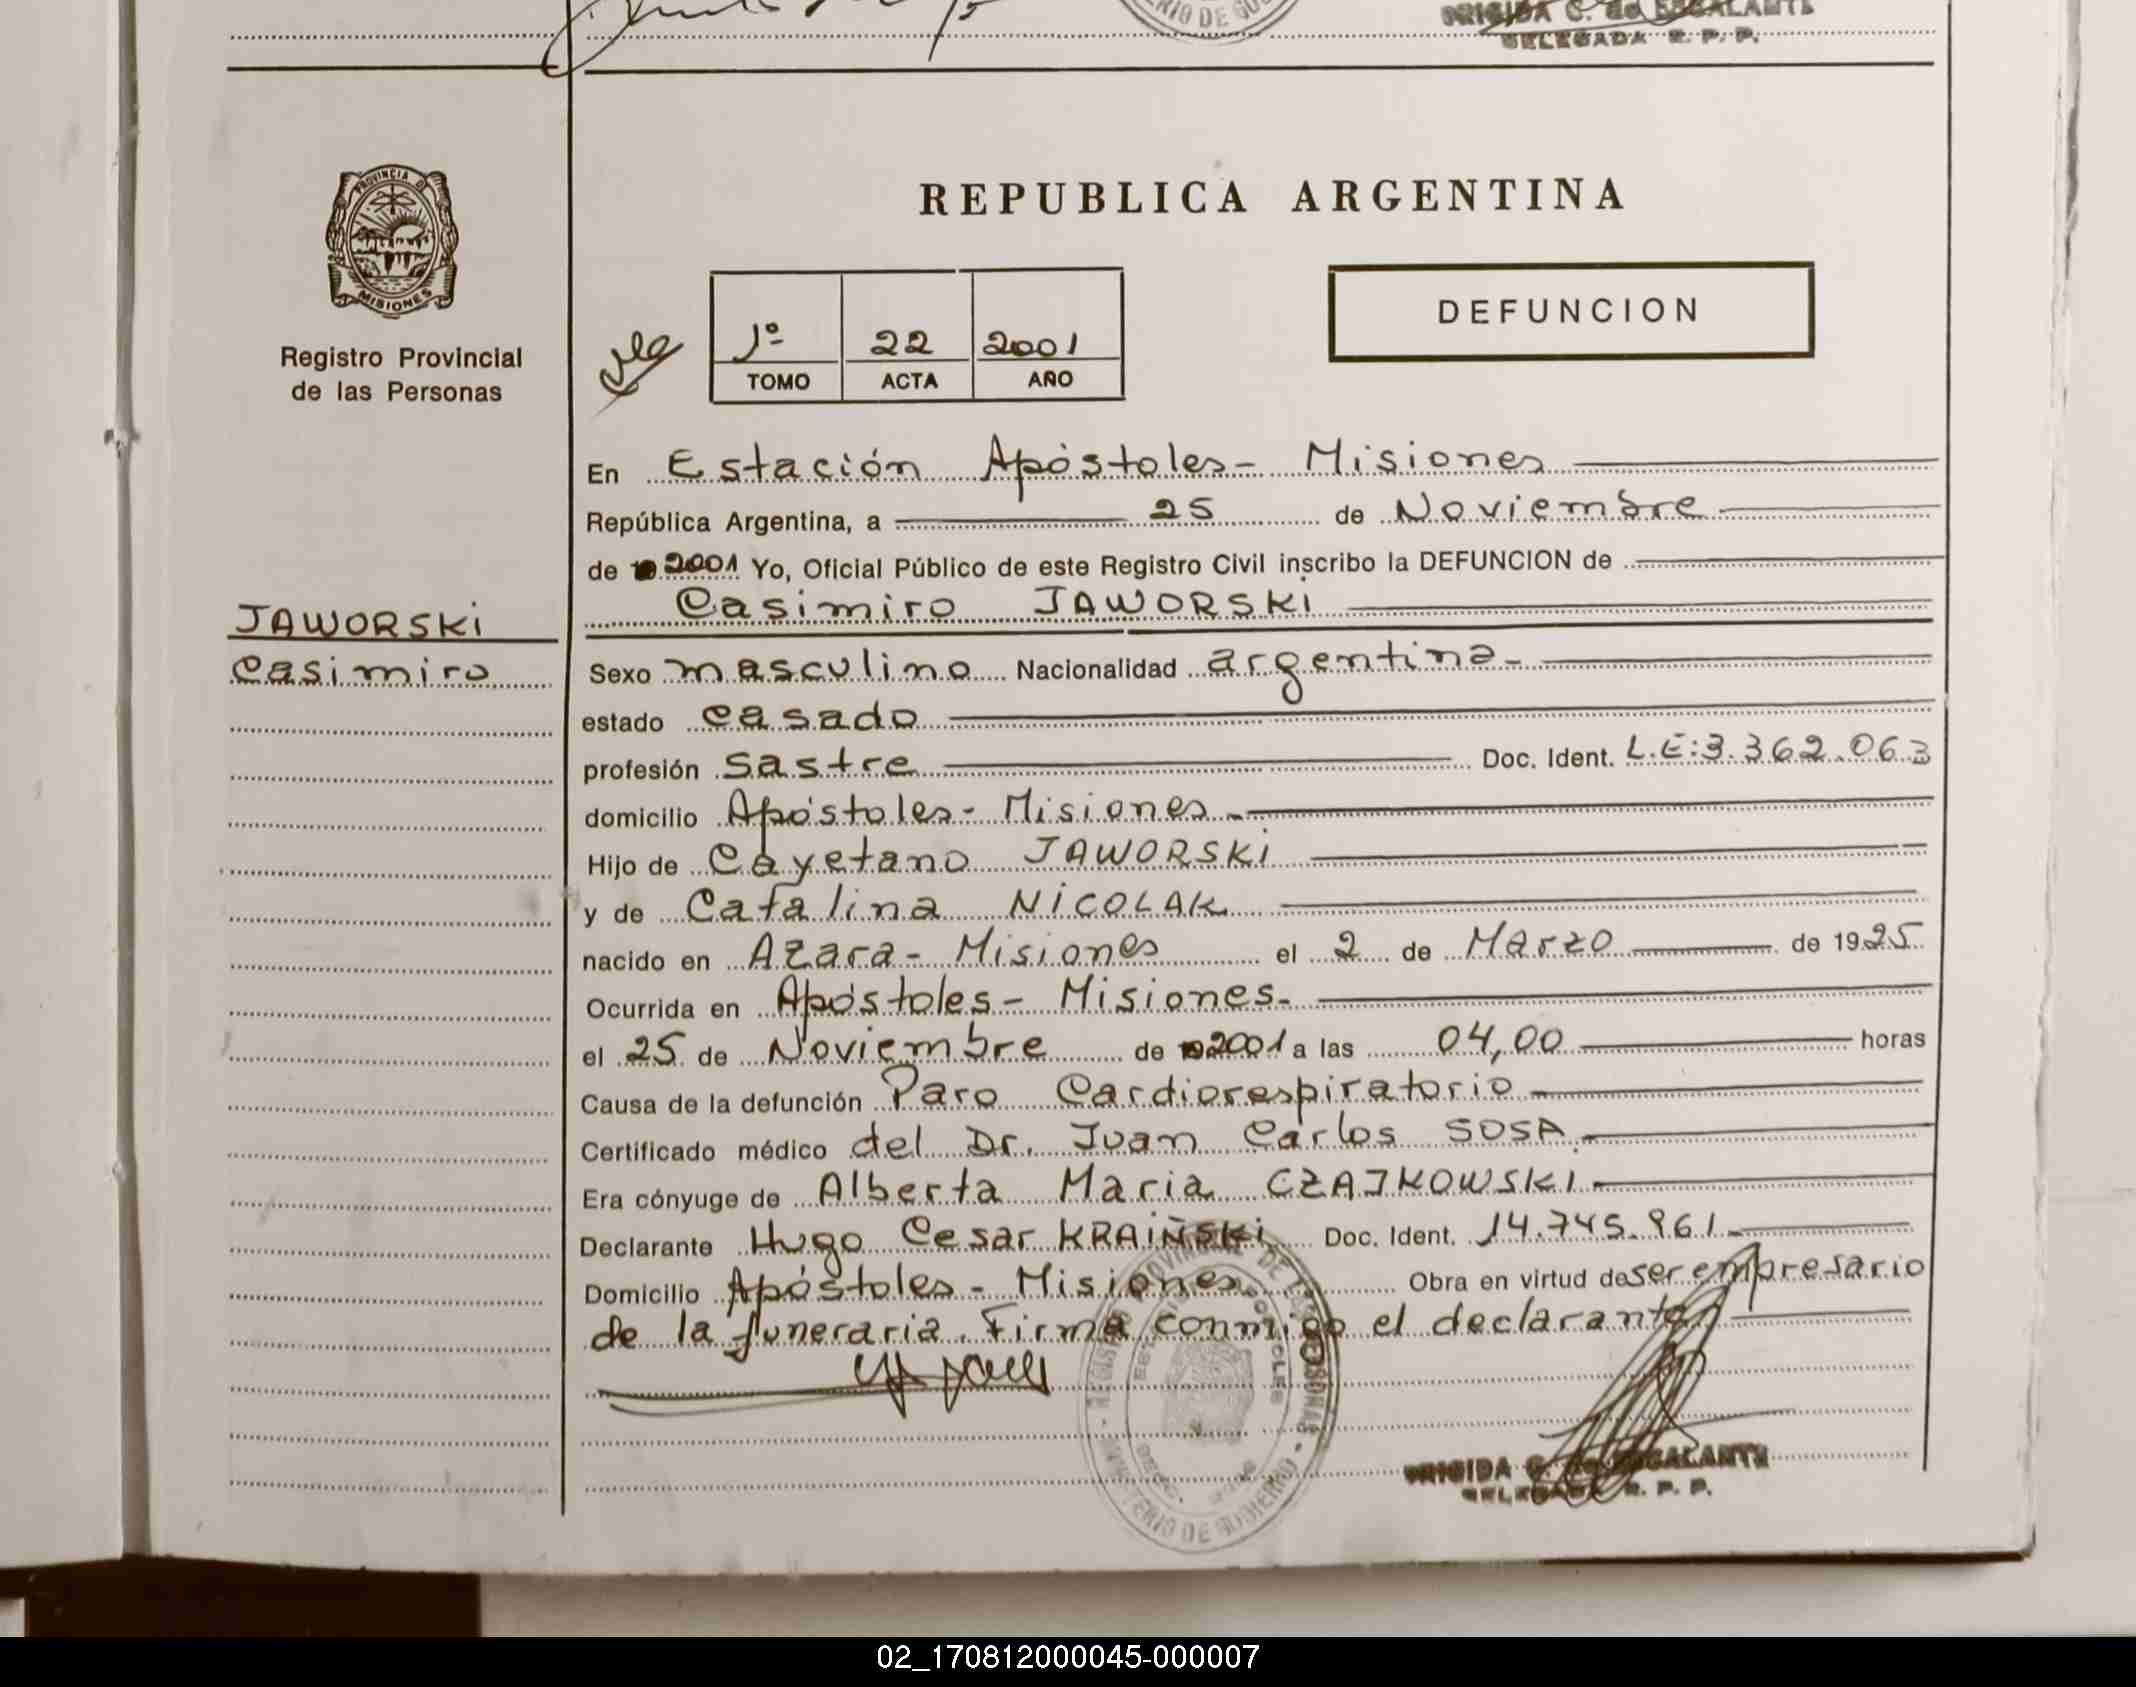 BRIGIDA C. de ESCALANTE
DELEGADA R. P. P.
PROVINCIA DE
MISIONES
Registro Provincial
de las Personas
REPUBLICA ARGENTINA
1º 22 2001
TOMO ACTA AÑO
DEFUNCION
En Estación Apóstoles- Misiones
República Argentina, a 25 de Noviembre
de 2001 Yo, Oficial Público de este Registro Civil inscribo la DEFUNCION de
Casimiro JAWORSKI
JAWORSKI
Casimiro
Sexo masculino Nacionalidad argentina-
estado casado
profesión sastre Doc. Ident. L.E:3.362.063
domicilio Apóstoles- Misiones-
Hijo de Cayetano JAWORSKI
y de Catalina NICOLAK
nacido en Azara- Misiones el 2 de Marzo de 1925
Ocurrida en Apóstoles- Misiones-
el 25 de Noviembre de 2001 a las 04,00 horas
Causa de la defunción Paro Cardiorespiratorio
Certificado médico del Dr. Juan Carlos SOSA.
Era cónyuge de Alberta Maria CZAJKOWSKI.
Declarante Hugo Cesar KRAIÑSKI Doc. Ident. 14.745.961.
Domicilio Apóstoles- Misiones Obra en virtud de ser empresario
de la funeraria. Firma conmigo el declarante
REGISTRO PROVINCIAL DE LAS PERSONAS
MINISTERIO DE GOBIERNO
BRIGIDA C. de ESCALANTE
DELEGADA R. P. P.
02_170812000045-000007